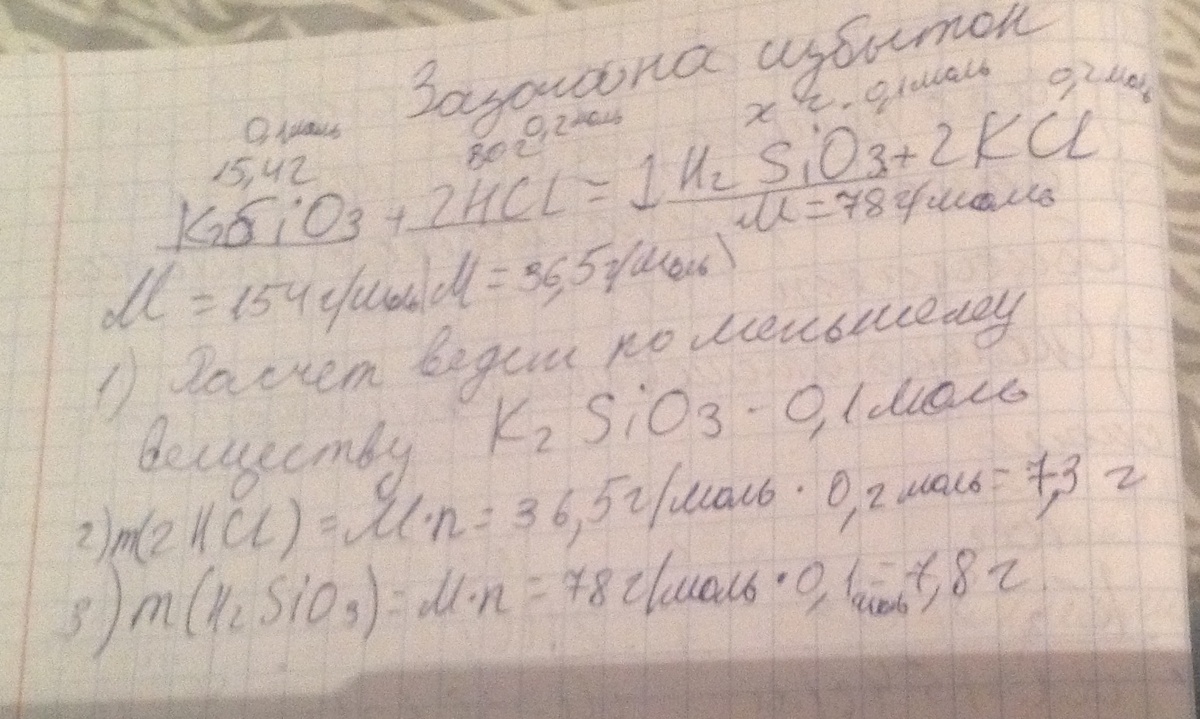 Задача на избыток
0,1моль 0,2моль х г. 0,1моль 0,2моль
15,4г 80г
K2SiO3 + 2HCl = 1 H2 SiO3 + 2KCl
M = 154г/моль M = 36,5г/моль M = 78г/моль
1) Расчет ведем по меньшему
веществу K2 SiO3 - 0,1моль
2) m(2HCl) = M·n = 36,5г/моль · 0,2моль = 7,3 г
3) m(H2 SiO3) = M·n = 78г/моль · 0,1моль = 7,8г